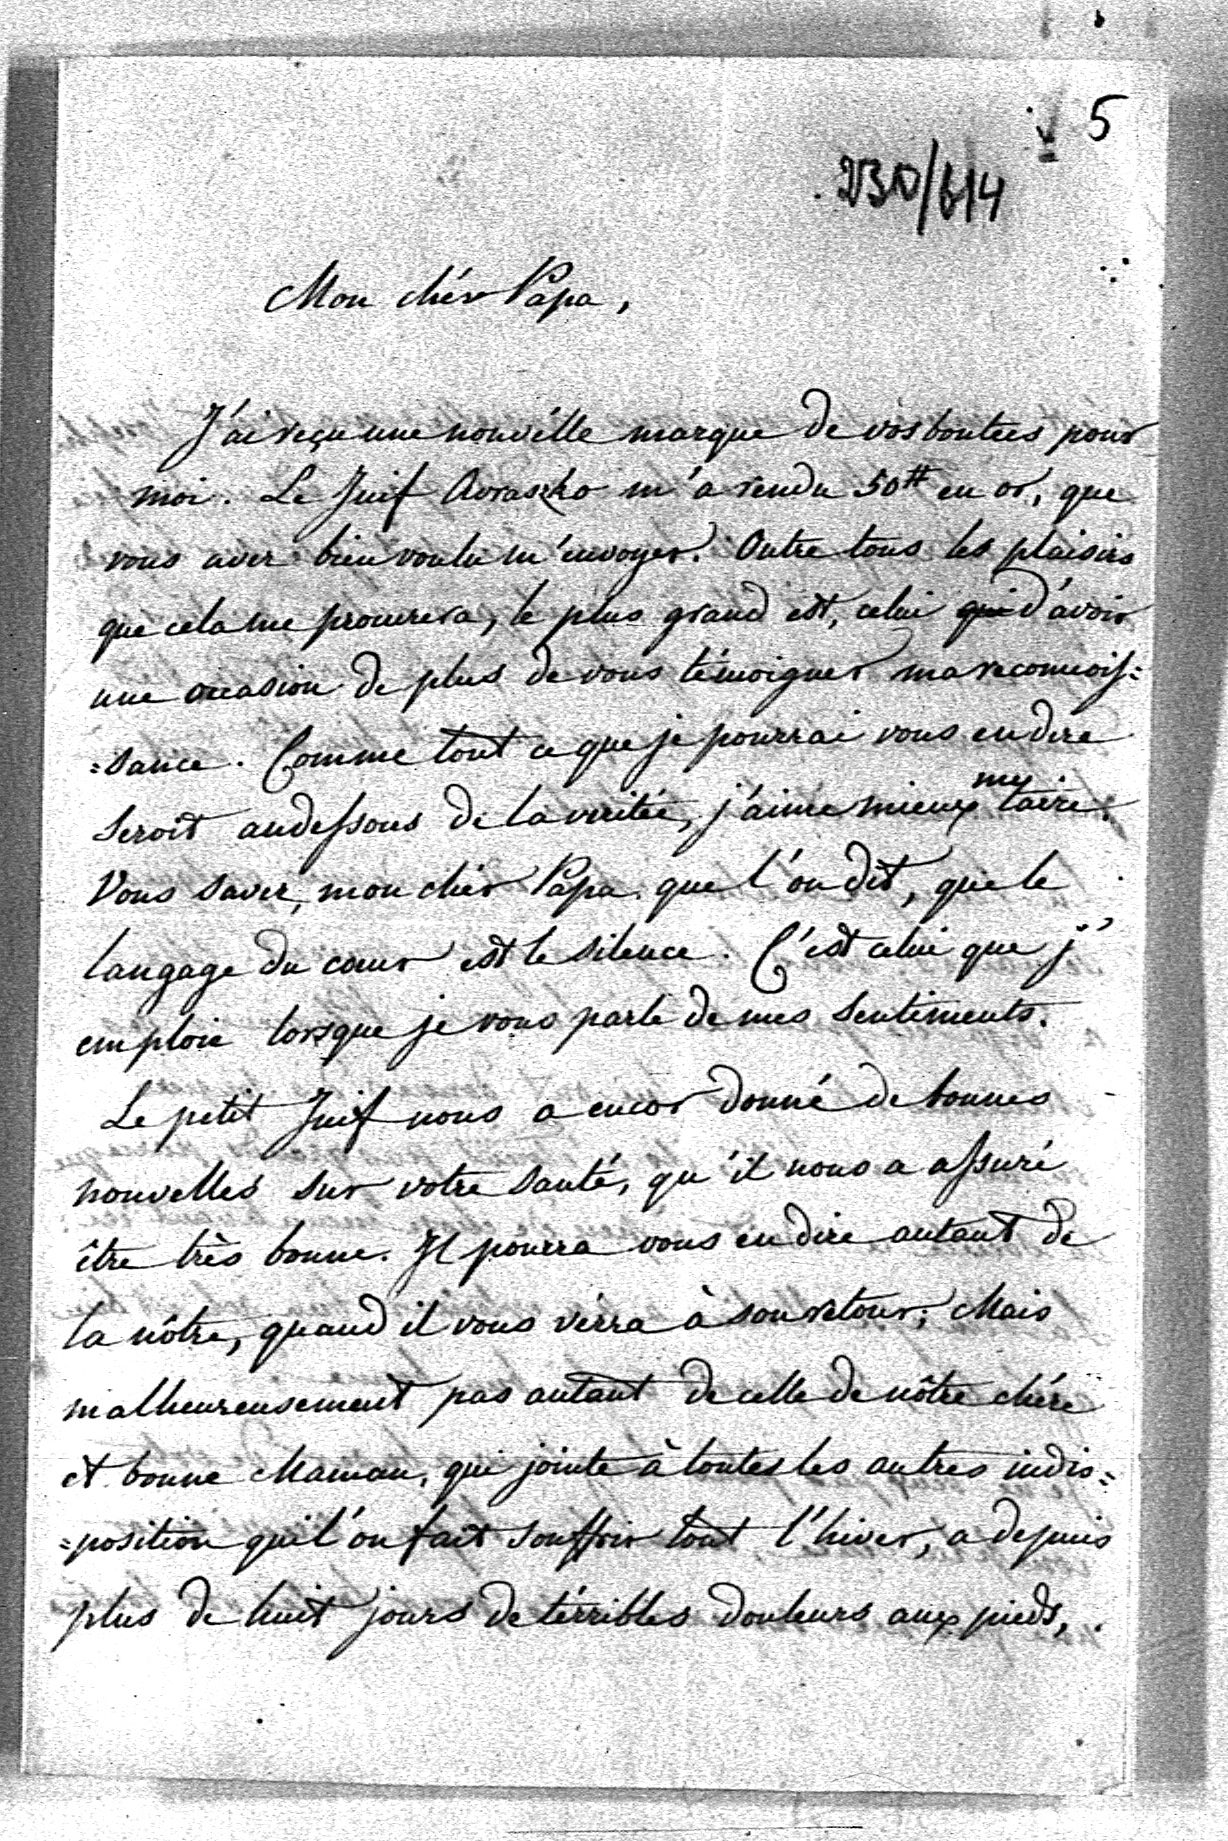 v 5
230/614
Mon chér Papa,
J'ai reçu une nouvélle marque de vos bontées pour
moi. Le Juif Avraszko m'a rendu 50# en or, que
vous avez bien voulu m'envoyer. Outre tous les plaisirs
que cela me procurera, le plus grand est, celui qui d'avoir
une occasion de plus de vous témoigner ma reconnois=
=sance. Comme tout ce que je pourrai vous en dire
seroit audessous de la veritée, j'aime mieux my taire.
Vous savez, mon chér Papa que l'on dit, que le
langage du cœur est le silence. C'est celui que j'
emploie lorsque je vous parle de mes sentiments.
Le petit Juif nous a encor donné de bonnes
nouvelles sur votre santé, qu'il nous a assuré
être très bonne. Il pourra vous en dire autant de
la nôtre, quand il vous vèrra à son retour; Mais
malheureusement pas autant de celle de nôtre chére
et bonne Maman, qui jointe à toutes les autres indis=
=position qui l'on fait souffrir tout l'hiver, a depuis
plus de huit jours de térribles douleurs aux pieds,